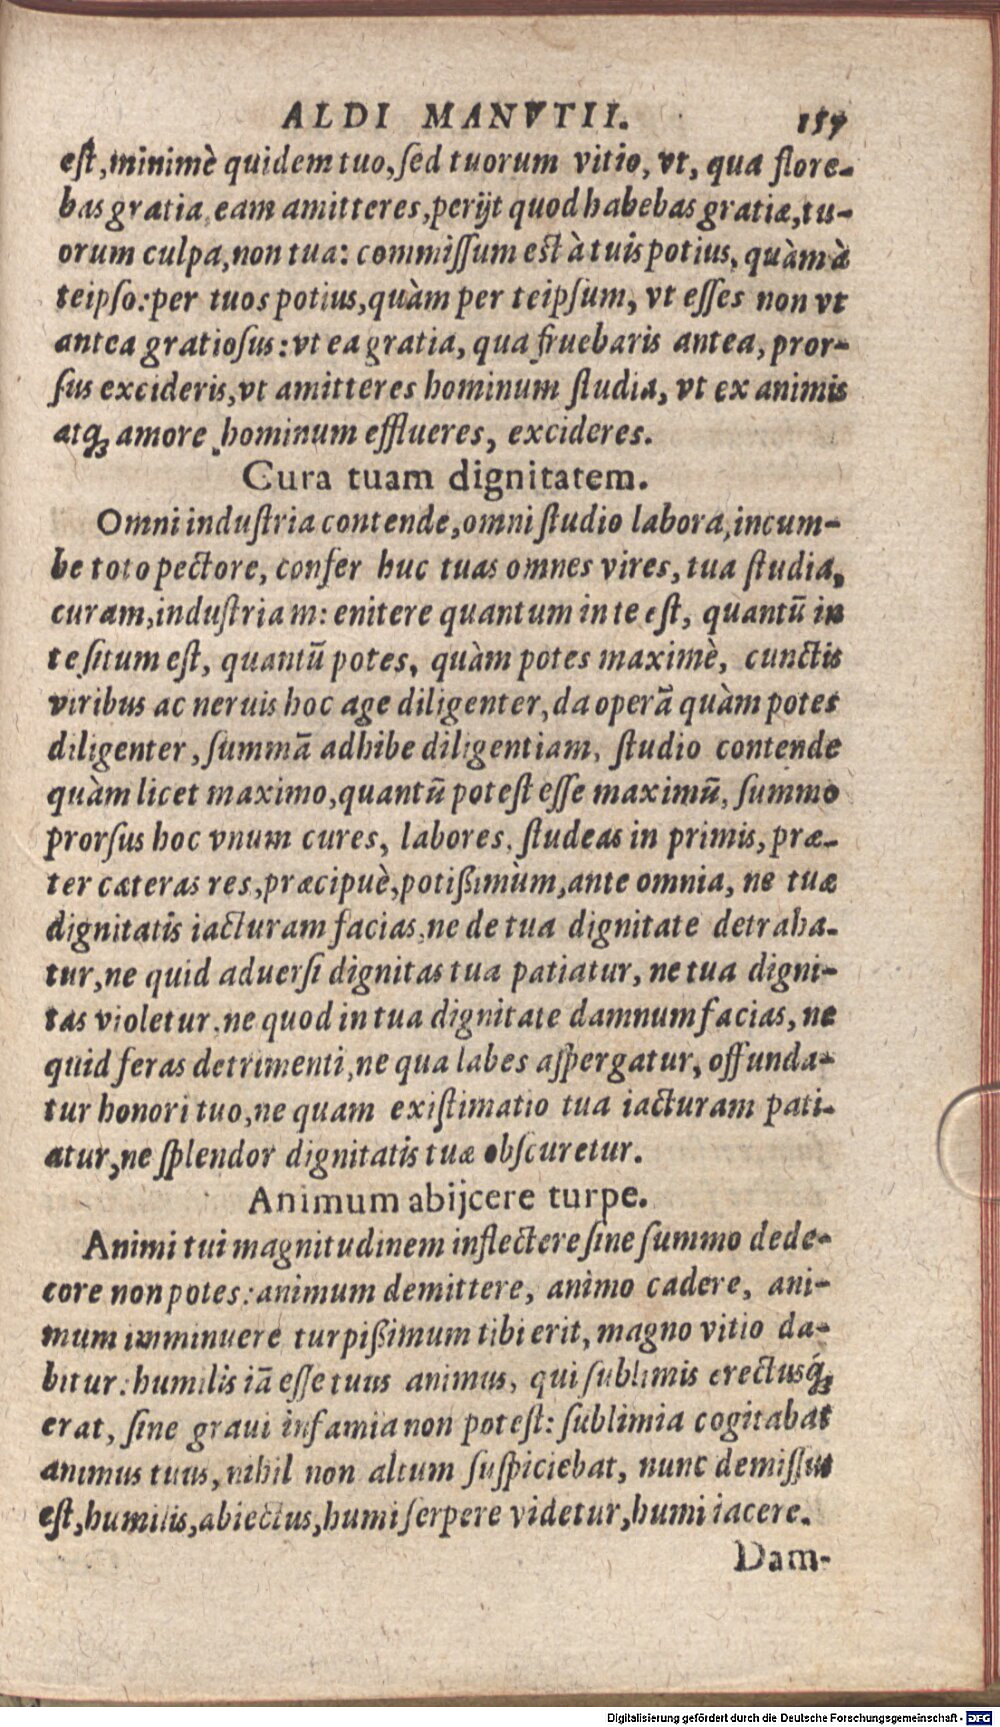 ALDI MANVTII. 157
est, minimè quidem tuo, sed tuorum vitio, vt, qua flore-
bas gratia, eam amitteres, perijt quod habebas gratiæ, tu-
orum culpa, non tua: commissum est à tuis potius, quàm à
teipso: per tuos potius, quàm per teipsum, vt esses non vt
antea gratiosus: vt ea gratia, qua fruebaris antea, pror-
sus excideris, vt amitteres hominum studia, vt ex animis
atq́; amore hominum efflueres, excideres.
Cura tuam dignitatem.
Omni industria contende, omni studio labora, incum-
be toto pectore, confer huc tuas omnes vires, tua studia,
curam, industriam: enitere quantum in te est, quantū in
te situm est, quantū potes, quàm potes maximè, cunctis
viribus ac neruis hoc age diligenter, da operā quàm potes
diligenter, summā adhibe diligentiam, studio contende
quàm licet maximo, quantū potest esse maximū, summo
prorsus hoc vnum cures, labores, studeas in primis, præ-
ter cæteras res, præcipuè, potißimùm, ante omnia, ne tuæ
dignitatis iacturam facias, ne de tua dignitate detraha-
tur, ne quid aduersi dignitas tua patiatur, ne tua digni-
tas violetur, ne quod in tua dignitate damnum facias, ne
quid feras detrimenti, ne qua labes aspergatur, offunda-
tur honori tuo, ne quam existimatio tua iacturam pati-
atur, ne splendor dignitatis tuæ obscuretur.
Animum abijcere turpe.
Animi tui magnitudinem inflectere sine summo dede-
core non potes: animum demittere, animo cadere, ani-
mum imminuere turpißimum tibi erit, magno vitio da-
bitur: humilis iā esse tuus animus, qui sublimis erectusq́;
erat, sine graui infamia non potest: sublimia cogitabat
animus tuus, nihil non altum suspiciebat, nunc demissus
est, humilis, abiectus, humi serpere videtur, humi iacere.
Dam-
Digitalisierung gefördert durch die Deutsche Forschungsgemeinschaft - DFG